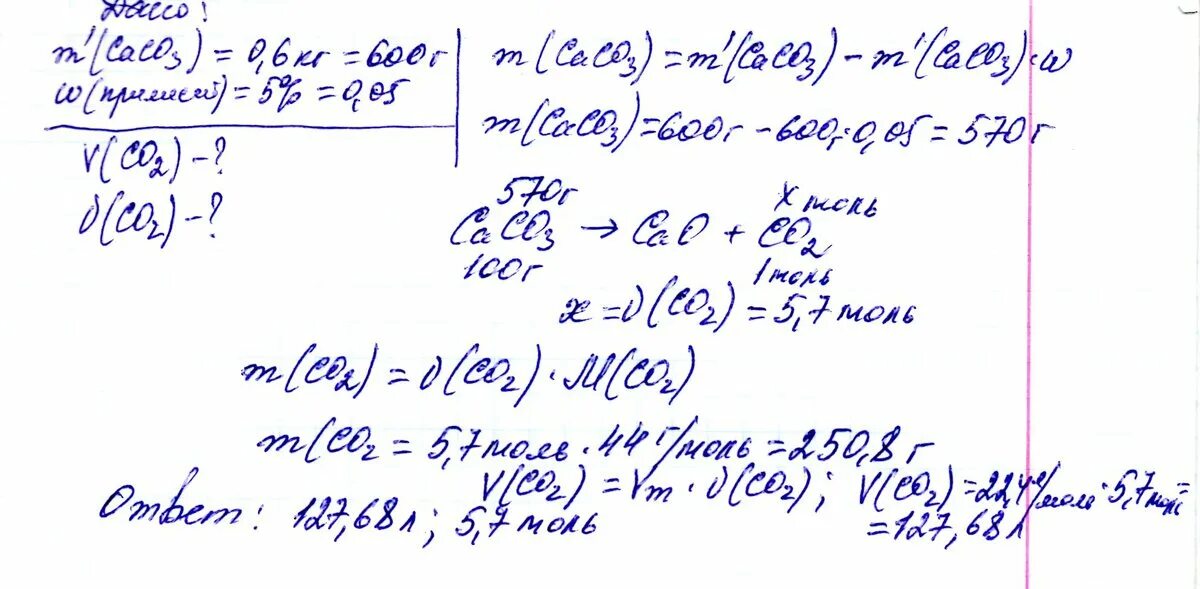 Дано:
m'(CaCO3) = 0,6 кг = 600 г
w(примесей) = 5% = 0,05
V(CO2) - ?
υ(CO2) - ?
m(CaCO3) = m'(CaCO3) - m'(CaCO3)·w
m(CaCO3) = 600г - 600г·0,05 = 570г
570г x моль
CaCO3 → CaO + CO2
100г 1 моль
x = υ(CO2) = 5,7 моль
m(CO2) = υ(CO2)·M(CO2)
m(CO2 = 5,7 моль · 44 г/моль = 250,8 г
V(CO2) = Vm · υ(CO2); V(CO2) = 22,4 л/моль · 5,7 моль =
= 127,68 л
Ответ: 127,68 л; 5,7 моль